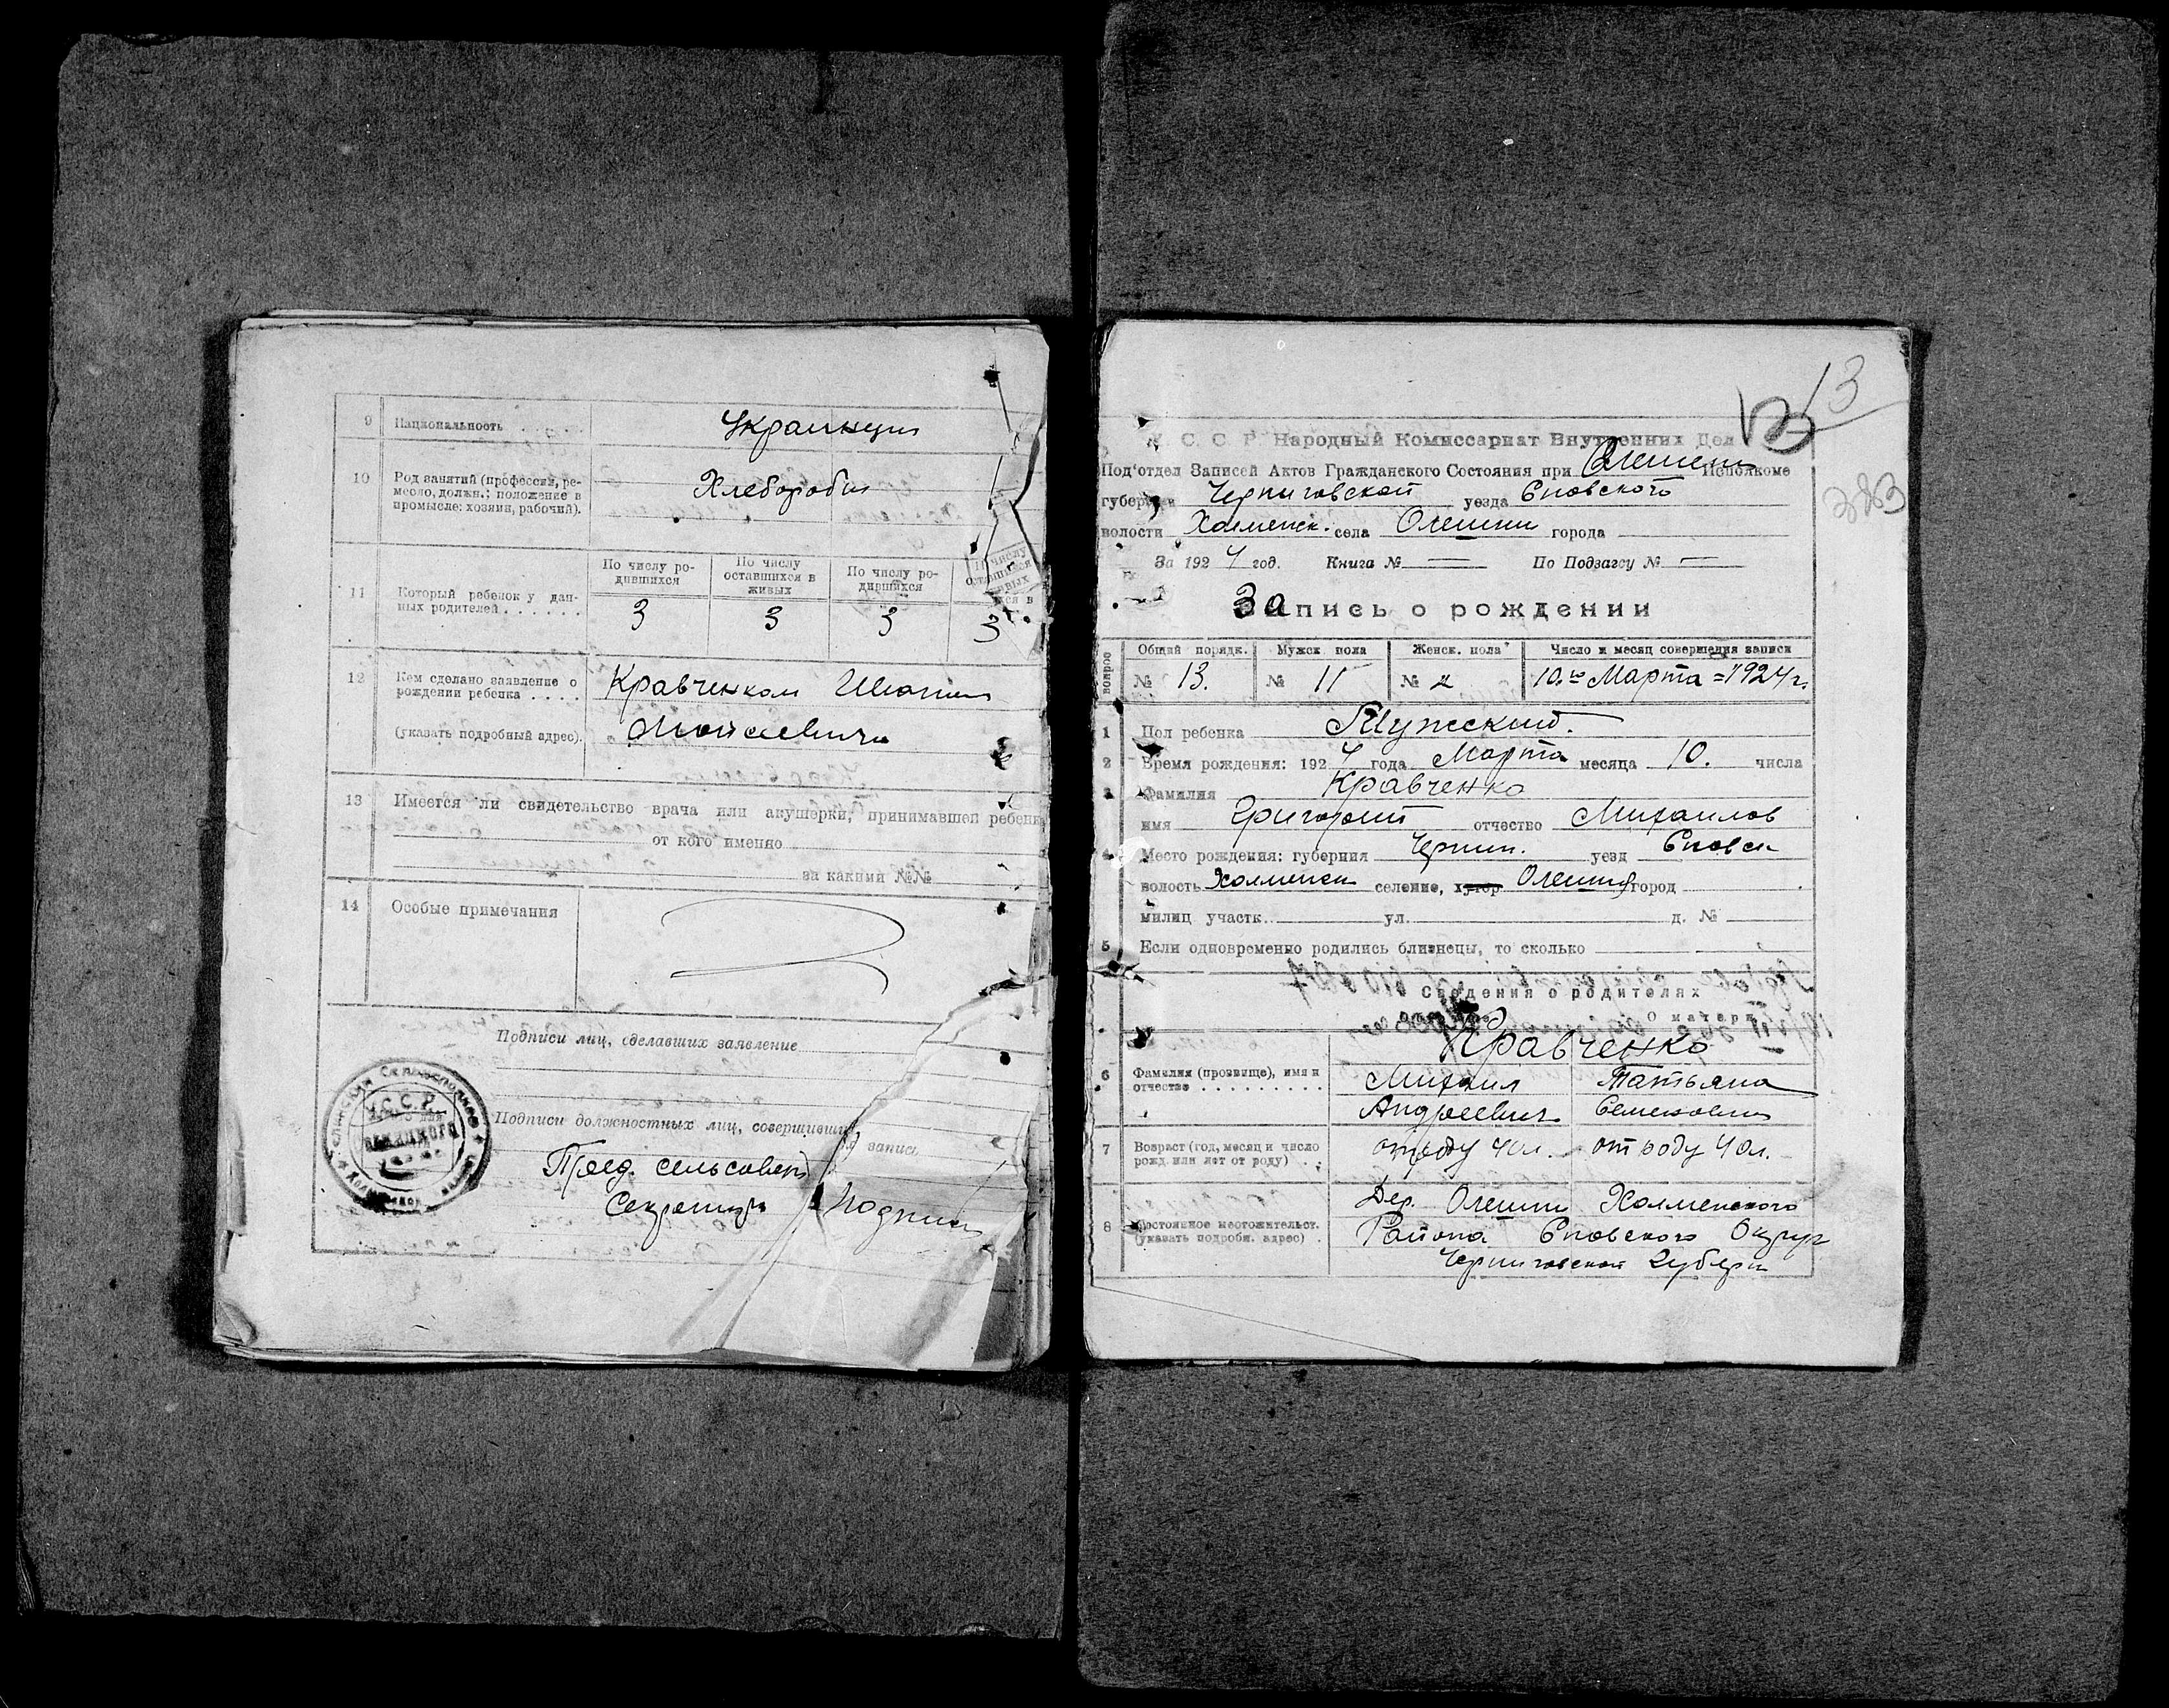 9 Национальность
Украинцы
10 Род занятий (профессий, ре-
месло, должн.; положение в
промысле: хозяин, рабочий).
Хлеборобы
11 Который ребенок у дан-
ных родителей . . . . . .
По числу ро-
дившихся
По числу
оставшихся в
живых
По числу ро-
дившихся
3 3 3 3
12 Кем сделано заявление о
рождении ребенка . . . .
(указать подробный адрес).
Кравченком
13 Имеется ли свидетельство врача или акушерки, принимавшей
от кого именно
за какими №№
14 Особые примечания
Подписи лиц, сделавших заявление
Подписи должностных лиц, совершивших запись
Пред. сельсовета
Секретарь
У.С.С.Р.
13
С. С. Р. Народный Комиссариат Внутренних Дел
Под'отдел Записей Актов Гражданского Состояния при Исполкоме
губернии Черниговской уезда Сновского
волости Холменск. села Олешни города
За 1924 год. Книга № — По Подзагсу № —
Запись о рождении
вопрос
Общий порядк. Мужск пола Женск. пола Число и месяц совершения записи
№ 13. № 11 № 10.го Марта 1924 г.
1 Пол ребенка Мужской.
2 Время рождения: 1924 года Марта месяца 10. числа
3 Фамилия Кравченко
имя Григорий отчество Михаилов
4 Место рождения: губерния Черниг. уезд Сновск
волость Холменск селение, хутор Олешня город
милиц участк. ул. д. №
5 Если одновременно родились близнецы, то сколько
Сведения о родителях
О матери
Кравченко
6 Фамилия (прозвище), имя и
отчество . . . . . . . . . .
Михаил Татьяна
Андреевич Семеновна
7 Возраст (год, месяц и число
рожд. или лет от роду) . .
от роду 40 л. от роду 40 л.
8 Постоянное местожительст.
(указать подробн. адрес) .
Дер. Олешни Холменского
Района Сновского Округ
Черниговской Губерн